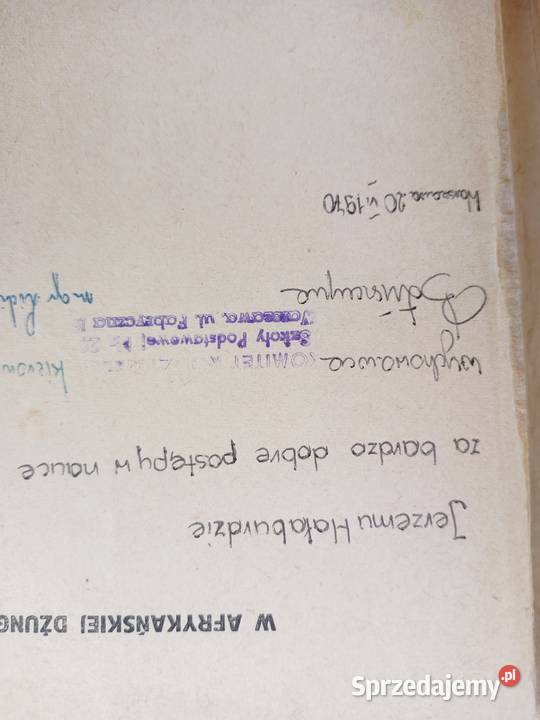 W AFRYKAŃSKIEJ DŻUNG
Jerzemu Hałaburdzie
za bardzo dobre postępy w nauce
wychowawca
KOMITET
Kierow
Szkoły Podstawowej Nr 2
Warszawa, ul. Fabryczna
mgr
Warszawa 20 VI 1970
Sprzedajemy.pl